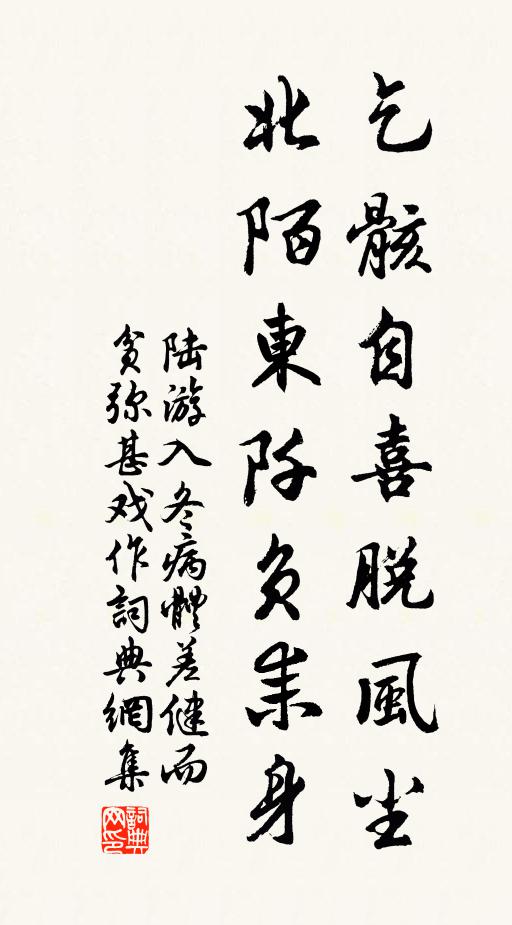 乞骸自喜脱風尘
北陌東阡负耒身
陆游入冬病體差健而
贫弥甚戏作詞典網集
詞典
网印